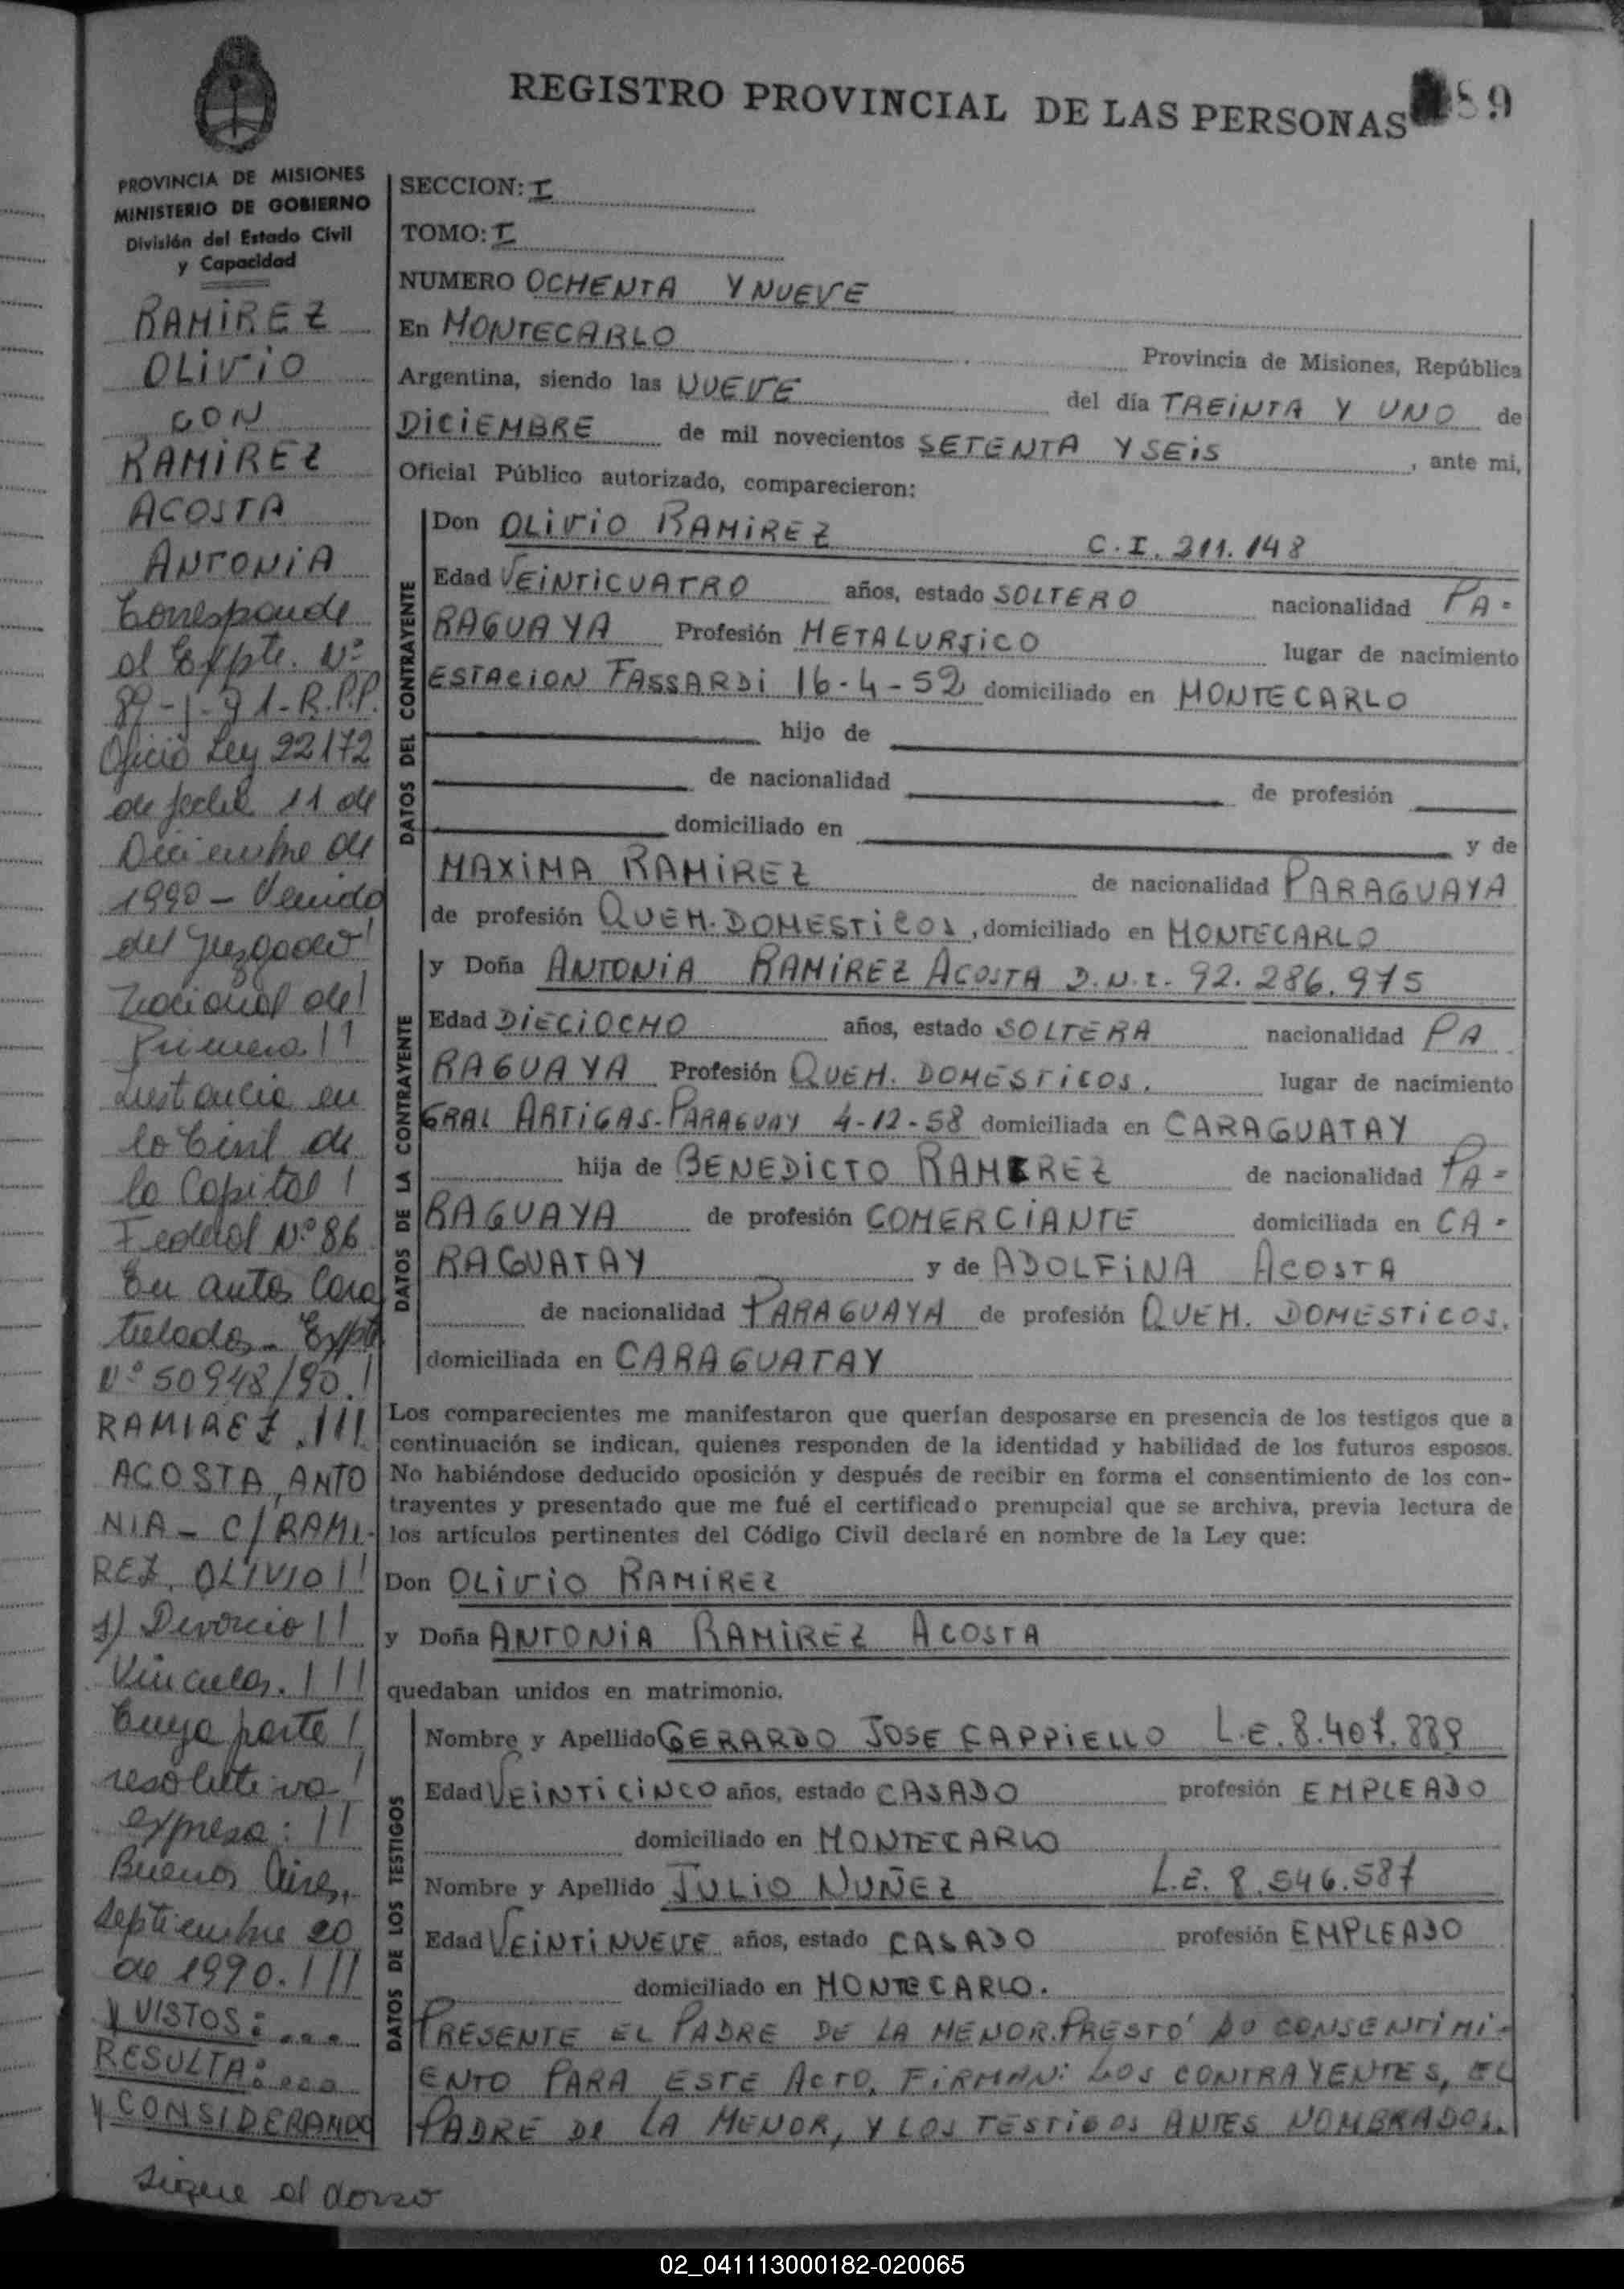 REGISTRO PROVINCIAL DE LAS PERSONAS 89
PROVINCIA DE MISIONES
MINISTERIO DE GOBIERNO
División del Estado Civil
y Capacidad
RAMIREZ
OLIVIO
CON
RAMIREZ
ACOSTA
ANTONIA
Corresponde
al Expte. Nº
89-1-91-R.P.P.
Oficio Ley 22172
de fecha 11 de
Diciembre de
1990 - Venido
del Juzgado
Nacional de
Primera
Instancia en
lo Civil de
la Capital
Federal Nº 86
En autos Cara
tulados - Expte
Nº 50948/90.
RAMIREZ
ACOSTA, ANTO
NIA - C/ RAMI-
REZ, OLIVIO
s/ Divorcio
Vincular.
Cuya parte
resolutiva
expresa:
Buenos Aires,
Septiembre 20
de 1990.
Y VISTOS: ...
RESULTA: ...
Y CONSIDERANDO
Sigue al dorso
SECCION: I
TOMO: I
NUMERO OCHENTA Y NUEVE
En MONTECARLO Provincia de Misiones, República
Argentina, siendo las NUEVE del día TREINTA Y UNO de
DICIEMBRE de mil novecientos SETENTA Y SEIS, ante mi,
Oficial Público autorizado, comparecieron:
DATOS DEL CONTRAYENTE
Don OLIVIO RAMIREZ C.I. 211.148
Edad VEINTICUATRO años, estado SOLTERO nacionalidad PA-
RAGUAYA Profesión METALURJICO lugar de nacimiento
ESTACION FASSARDI 16-4-52 domiciliado en MONTECARLO
hijo de
de nacionalidad de profesión
domiciliado en y de
MAXIMA RAMIREZ de nacionalidad PARAGUAYA
de profesión QUEH. DOMESTICOS, domiciliado en MONTECARLO
DATOS DE LA CONTRAYENTE
y Doña ANTONIA RAMIREZ ACOSTA D.N.I. 92.286.975
Edad DIECIOCHO años, estado SOLTERA nacionalidad PA
RAGUAYA Profesión QUEH. DOMESTICOS. lugar de nacimiento
GRAL ARTIGAS-PARAGUAY 4-12-58 domiciliada en CARAGUATAY
hija de BENEDICTO RAMIREZ de nacionalidad PA-
RAGUAYA de profesión COMERCIANTE domiciliada en CA-
RAGUATAY y de ADOLFINA ACOSTA
de nacionalidad PARAGUAYA de profesión QUEH. DOMESTICOS.
domiciliada en CARAGUATAY
Los comparecientes me manifestaron que querían desposarse en presencia de los testigos que a
continuación se indican, quienes responden de la identidad y habilidad de los futuros esposos.
No habiéndose deducido oposición y después de recibir en forma el consentimiento de los con-
trayentes y presentado que me fué el certificado prenupcial que se archiva, previa lectura de
los artículos pertinentes del Código Civil declaré en nombre de la Ley que:
Don OLIVIO RAMIREZ
y Doña ANTONIA RAMIREZ ACOSTA
quedaban unidos en matrimonio.
DATOS DE LOS TESTIGOS
Nombre y Apellido GERARDO JOSE CAPPIELLO L.E. 8.407.889
Edad VEINTICINCO años, estado CASADO profesión EMPLEADO
domiciliado en MONTECARLO
Nombre y Apellido JULIO NUÑEZ L.E. 8.546.587
Edad VEINTINUEVE años, estado CASADO profesión EMPLEADO
domiciliado en MONTECARLO.
PRESENTE EL PADRE DE LA MENOR. PRESTÓ SU CONSENTIMI-
ENTO PARA ESTE ACTO, FIRMAN: LOS CONTRAYENTES, EL
PADRE DE LA MENOR, Y LOS TESTIGOS ANTES NOMBRADOS.
02_041113000182-020065